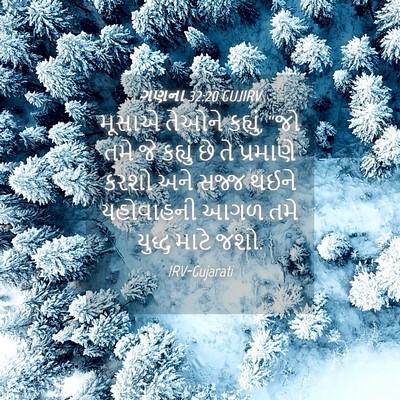 ગણના 32:20 GUJIRV
મૂસાએ તેઓને કહ્યું, "જો
તમે જે કહ્યું છે તે પ્રમાણે
કરશો અને સજ્જ થઈને
યહોવાહની આગળ તમે
યુદ્ધ માટે જશો.
IRV-Gujarati